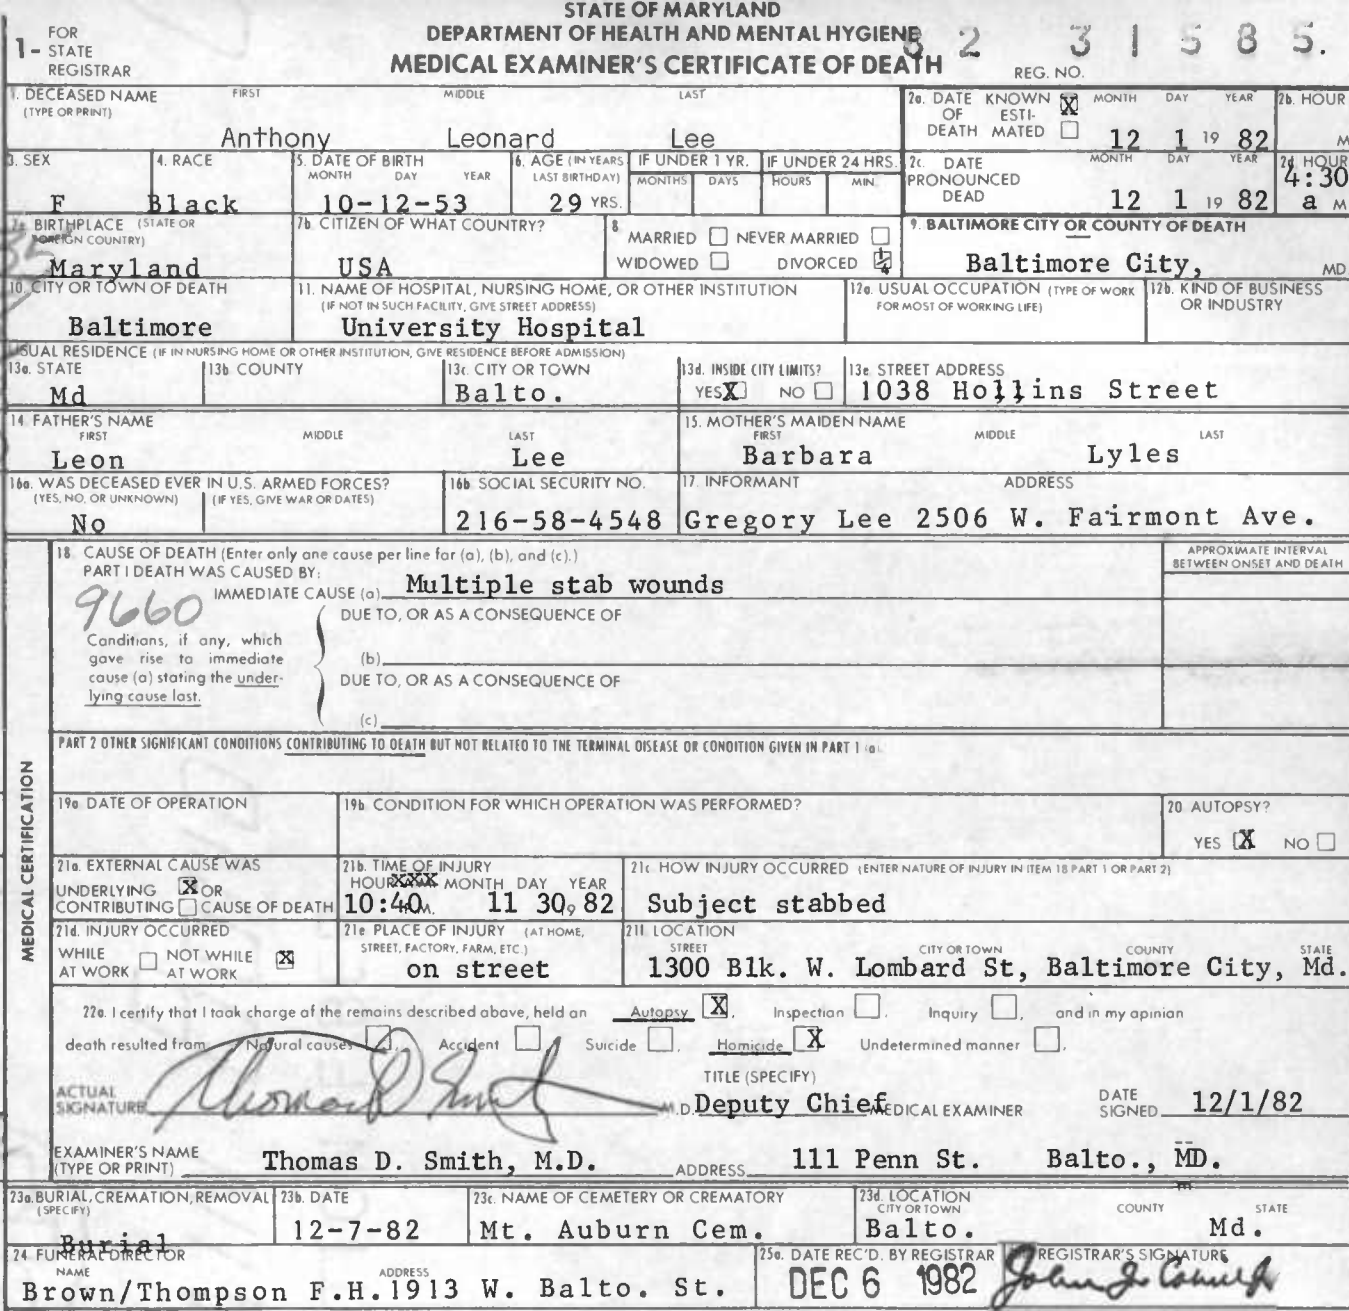 STATE OF MARYLAND
DEPARTMENT OF HEALTH AND MENTAL HYGIENE
MEDICAL EXAMINER'S CERTIFICATE OF DEATH
1- FOR STATE REGISTRAR
82 31585.
REG. NO.
1. DECEASED NAME (TYPE OR PRINT) FIRST MIDDLE LAST
Anthony Leonard Lee
2a. DATE OF DEATH KNOWN X ESTIMATED MONTH DAY YEAR
12 1 19 82
2b. HOUR M
3. SEX
F
4. RACE
Black
5. DATE OF BIRTH MONTH DAY YEAR
10-12-53
6. AGE (IN YEARS LAST BIRTHDAY)
29 YRS.
IF UNDER 1 YR. MONTHS DAYS
IF UNDER 24 HRS. HOURS MIN.
2c. DATE PRONOUNCED DEAD MONTH DAY YEAR
12 1 19 82
2d HOUR
4:30 a M
7a BIRTHPLACE (STATE OR FOREIGN COUNTRY)
Maryland
7b. CITIZEN OF WHAT COUNTRY?
USA
8 MARRIED NEVER MARRIED
WIDOWED DIVORCED
9. BALTIMORE CITY OR COUNTY OF DEATH
Baltimore City, MD
10. CITY OR TOWN OF DEATH
Baltimore
11. NAME OF HOSPITAL, NURSING HOME, OR OTHER INSTITUTION
(IF NOT IN SUCH FACILITY, GIVE STREET ADDRESS)
University Hospital
12a. USUAL OCCUPATION (TYPE OF WORK FOR MOST OF WORKING LIFE)
12b. KIND OF BUSINESS OR INDUSTRY
USUAL RESIDENCE (IF IN NURSING HOME OR OTHER INSTITUTION, GIVE RESIDENCE BEFORE ADMISSION)
13a. STATE
Md
13b COUNTY
13c. CITY OR TOWN
Balto.
13d. INSIDE CITY LIMITS?
YES X NO
13e STREET ADDRESS
1038 Hollins Street
14 FATHER'S NAME FIRST MIDDLE LAST
Leon Lee
15. MOTHER'S MAIDEN NAME FIRST MIDDLE LAST
Barbara Lyles
16a. WAS DECEASED EVER IN U.S. ARMED FORCES?
(YES, NO, OR UNKNOWN) (IF YES, GIVE WAR OR DATES)
No
16b SOCIAL SECURITY NO.
216-58-4548
17. INFORMANT ADDRESS
Gregory Lee 2506 W. Fairmont Ave.
MEDICAL CERTIFICATION
18 CAUSE OF DEATH (Enter only one cause per line for (a), (b), and (c).)
APPROXIMATE INTERVAL BETWEEN ONSET AND DEATH
PART I DEATH WAS CAUSED BY:
IMMEDIATE CAUSE (a) Multiple stab wounds
9660
DUE TO, OR AS A CONSEQUENCE OF
Conditions, if any, which
gave rise to immediate
cause (a) stating the under-
lying cause last.
(b)
DUE TO, OR AS A CONSEQUENCE OF
(c)
PART 2 OTHER SIGNIFICANT CONDITIONS CONTRIBUTING TO DEATH BUT NOT RELATED TO THE TERMINAL DISEASE OR CONDITION GIVEN IN PART 1 (a)
19a DATE OF OPERATION
19b CONDITION FOR WHICH OPERATION WAS PERFORMED?
20 AUTOPSY?
YES X NO
21a. EXTERNAL CAUSE WAS
UNDERLYING X OR
CONTRIBUTING CAUSE OF DEATH
21b. TIME OF INJURY
HOUR XXX MONTH DAY YEAR
10:40 M. 11 30, 82
21c. HOW INJURY OCCURRED (ENTER NATURE OF INJURY IN ITEM 18 PART 1 OR PART 2)
Subject stabbed
21d. INJURY OCCURRED
WHILE AT WORK NOT WHILE AT WORK X
21e PLACE OF INJURY (AT HOME, STREET, FACTORY, FARM, ETC.)
on street
21f. LOCATION STREET CITY OR TOWN COUNTY STATE
1300 Blk. W. Lombard St, Baltimore City, Md.
22a. I certify that I took charge of the remains described above, held an Autopsy X, Inspection, Inquiry, and in my opinion
death resulted from Natural causes, Accident, Suicide, Homicide X Undetermined manner.
ACTUAL SIGNATURE Thomas D Smith M.D.
TITLE (SPECIFY)
Deputy Chief MEDICAL EXAMINER
DATE SIGNED 12/1/82
EXAMINER'S NAME (TYPE OR PRINT) Thomas D. Smith, M.D. ADDRESS 111 Penn St. Balto., MD.
23a. BURIAL, CREMATION, REMOVAL (SPECIFY)
Burial
23b. DATE
12-7-82
23c. NAME OF CEMETERY OR CREMATORY
Mt. Auburn Cem.
23d. LOCATION CITY OR TOWN COUNTY STATE
Balto. Md.
24 FUNERAL DIRECTOR NAME ADDRESS
Brown/Thompson F.H. 1913 W. Balto. St.
25a. DATE REC'D. BY REGISTRAR
DEC 6 1982
REGISTRAR'S SIGNATURE
John J.